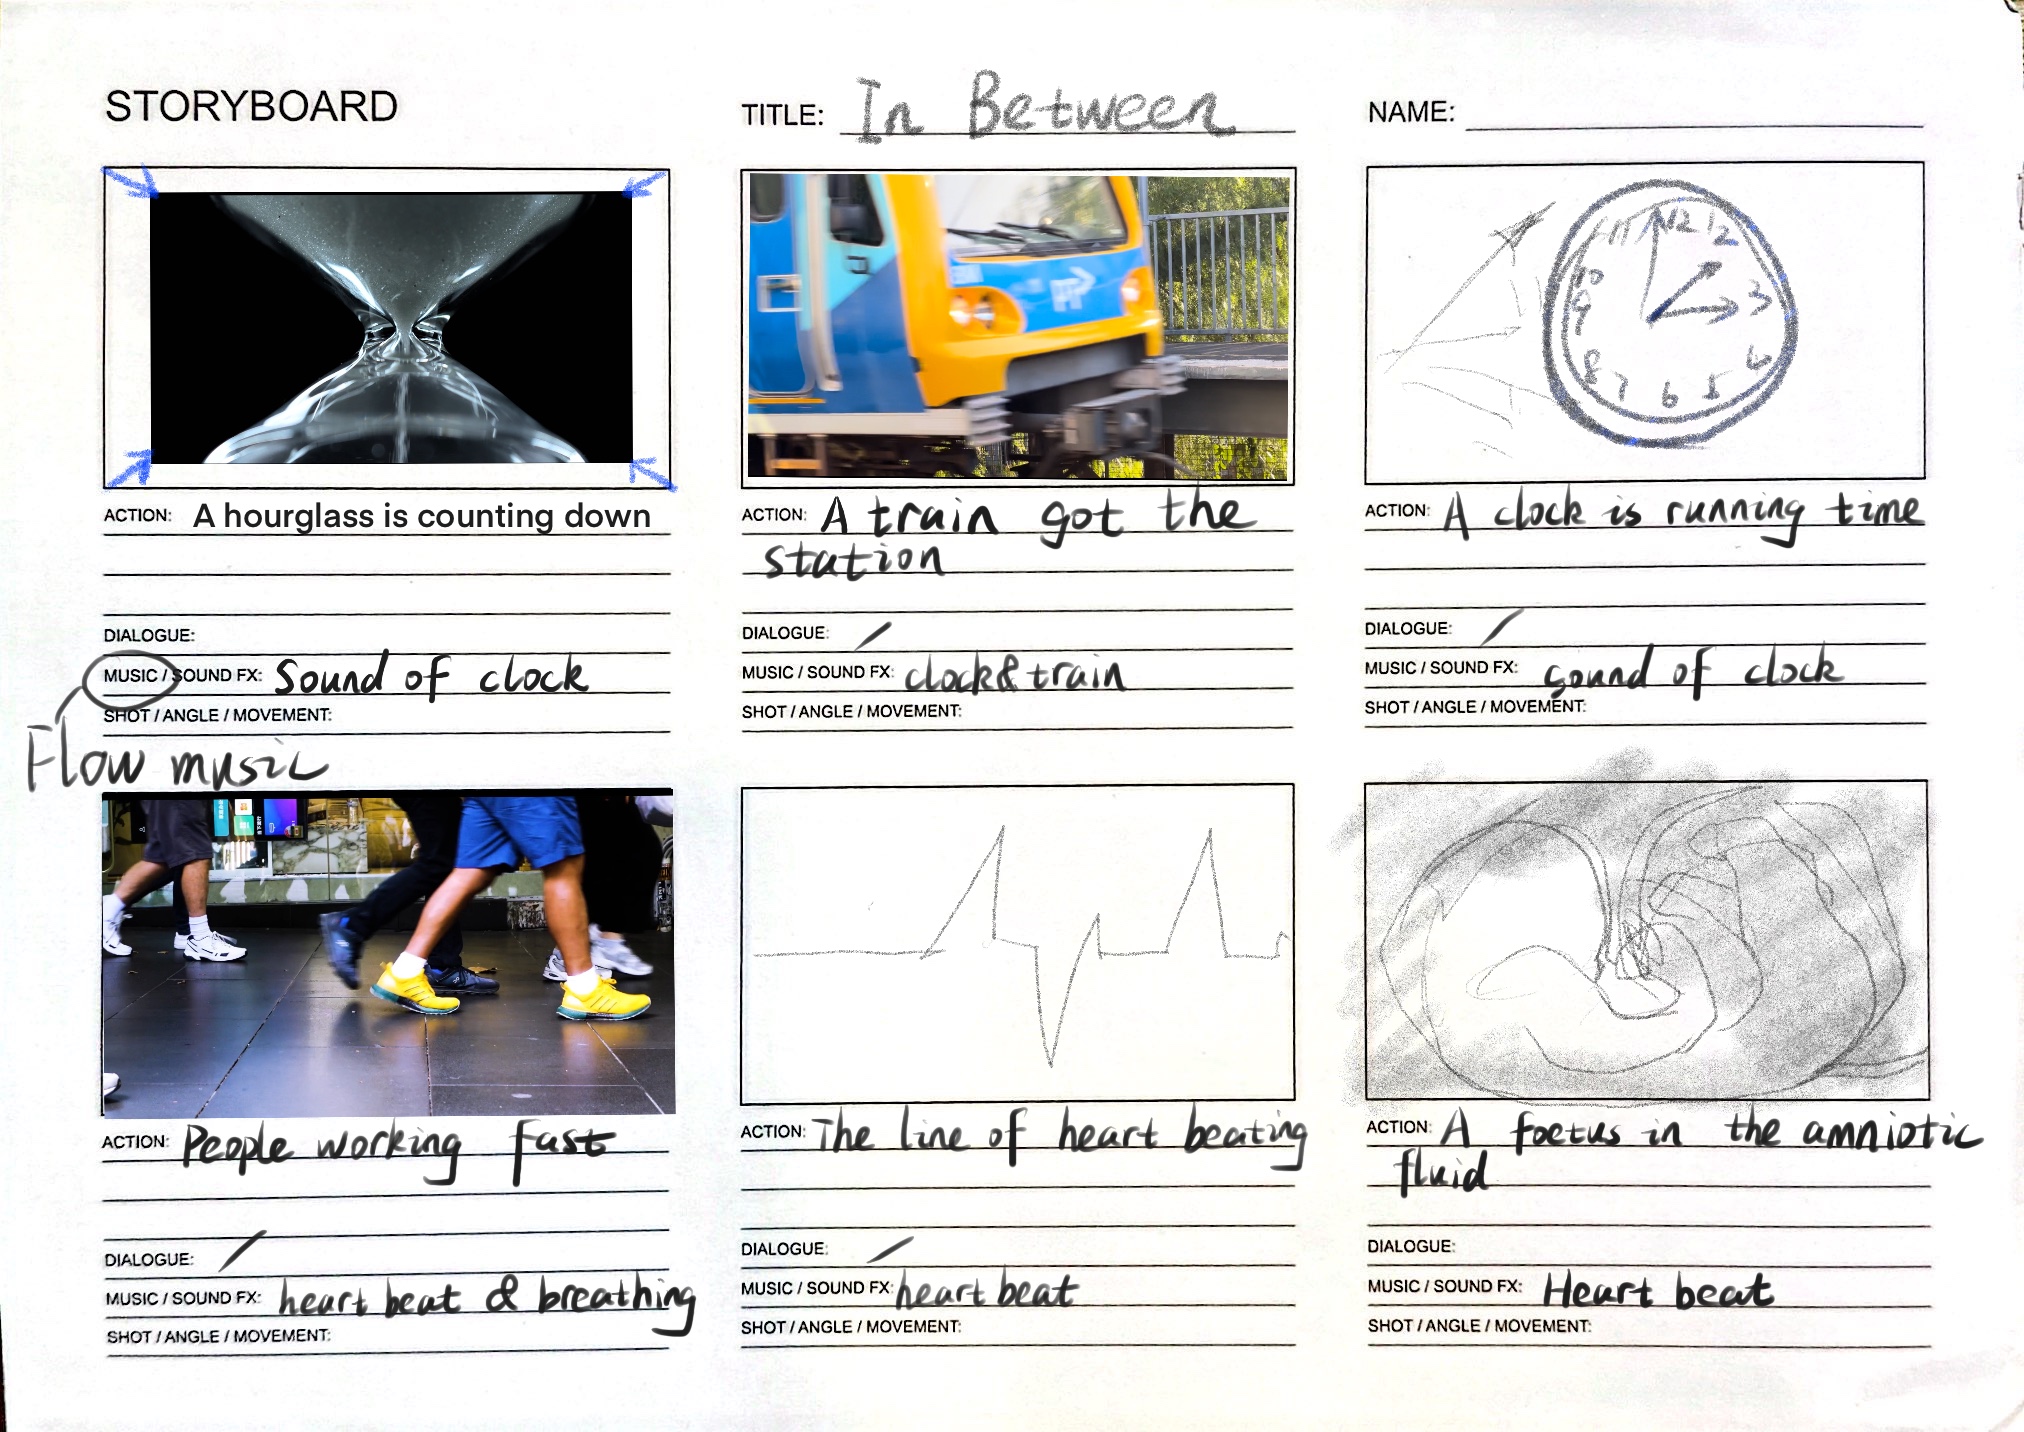 STORYBOARD
TITLE: In Between
NAME:
PT>
11 12 1 2
10
9
3
8 7 6 5 4
ACTION: A hourglass is counting down
DIALOGUE:
MUSIC / SOUND FX: Sound of clock
SHOT / ANGLE / MOVEMENT:
Flow music
ACTION: A train got the
station
DIALOGUE: /
MUSIC / SOUND FX: clock&train
SHOT / ANGLE / MOVEMENT:
ACTION: A clock is running time
DIALOGUE: /
MUSIC / SOUND FX: sound of clock
SHOT / ANGLE / MOVEMENT:
ACTION: People working fast
DIALOGUE: /
MUSIC / SOUND FX: heart beat & breathing
SHOT / ANGLE / MOVEMENT:
ACTION: The line of heart beating
DIALOGUE: /
MUSIC / SOUND FX: heart beat
SHOT / ANGLE / MOVEMENT:
ACTION: A foetus in the amniotic
fluid
DIALOGUE:
MUSIC / SOUND FX: Heart beat
SHOT / ANGLE / MOVEMENT: